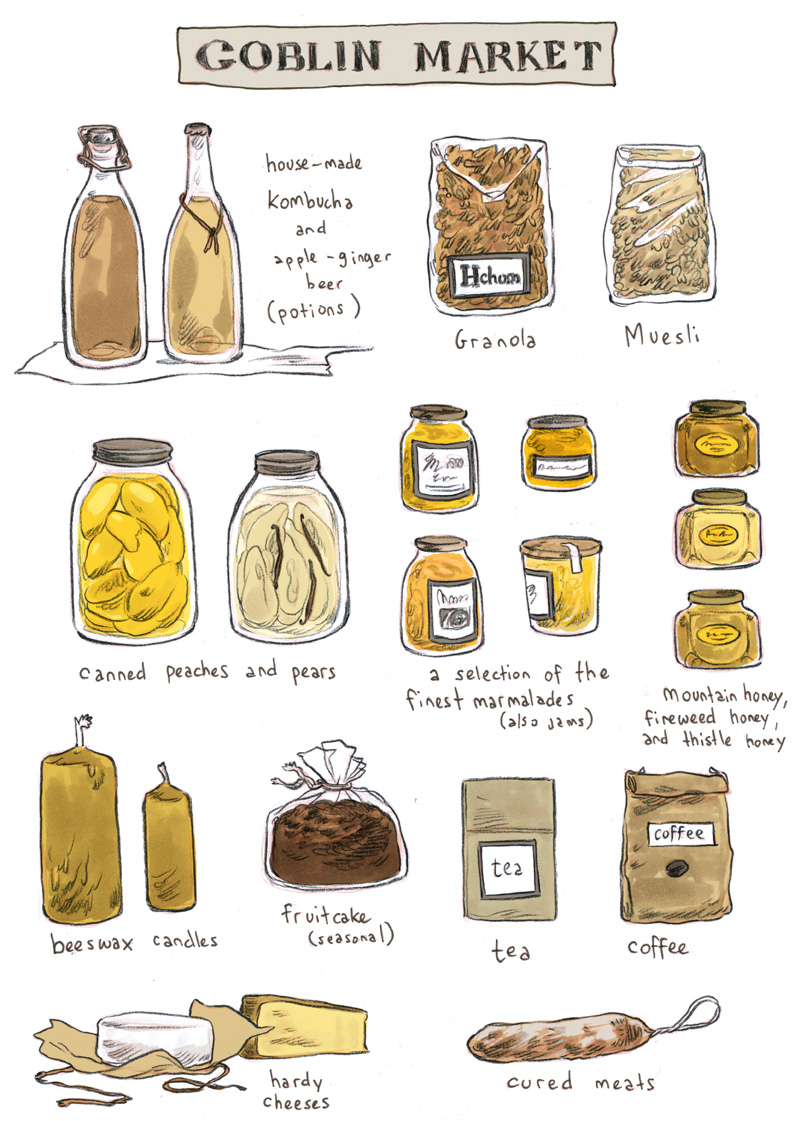 GOBLIN MARKET
house-made
kombucha
and
apple-ginger
beer
(potions)
Hchom
Granola
Muesli
canned peaches and pears
a selection of the
finest marmalades
(also jams)
mountain honey,
fireweed honey,
and thistle honey
beeswax candles
fruitcake
(seasonal)
tea
tea
coffee
coffee
hardy
cheeses
cured meats